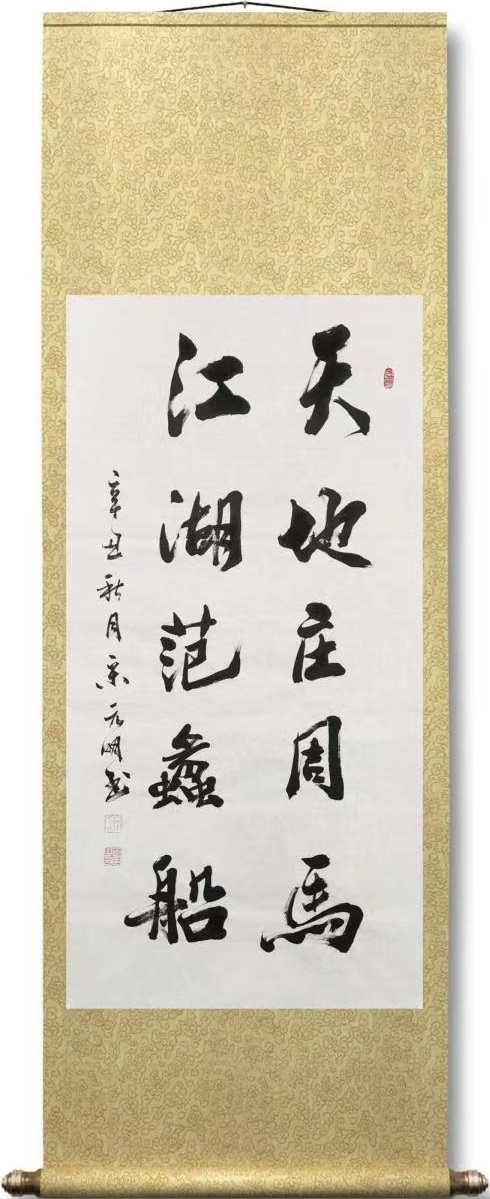 天地庄周马
江湖范蠡船
辛丑秋月宋元明书